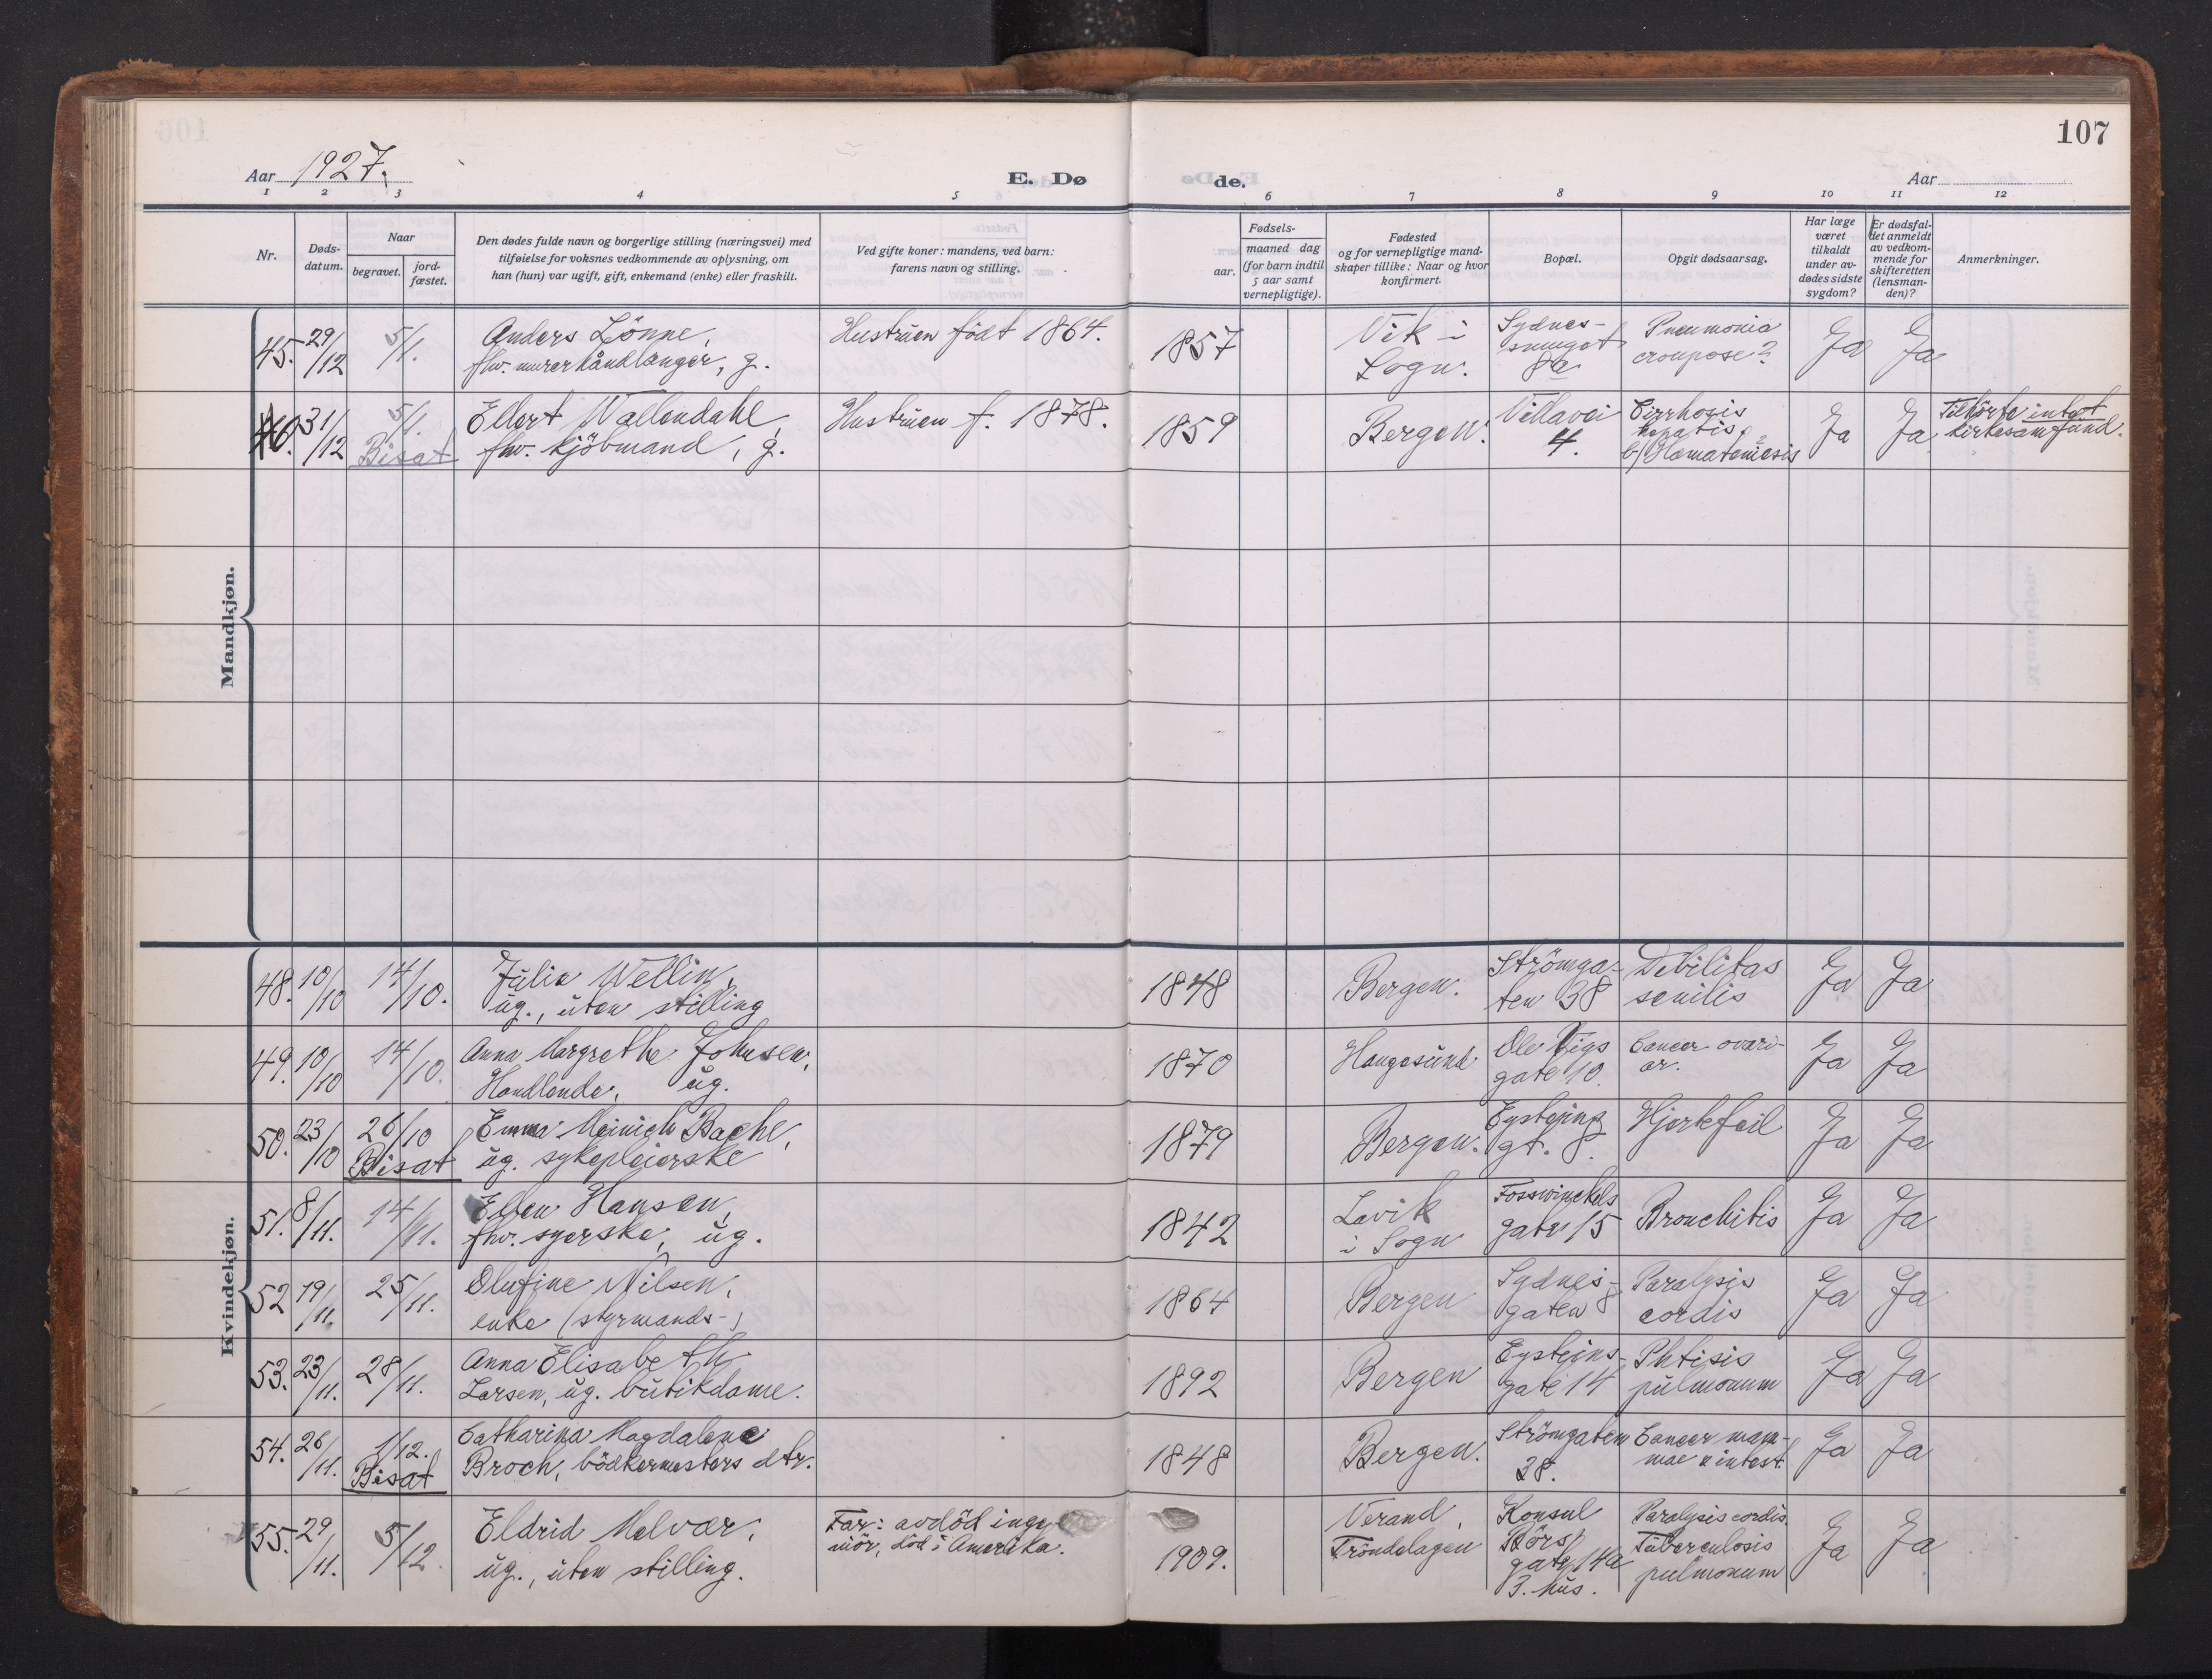 107
Aar 1927.
E. Dø
de.
Aar
1 2 3 4 5 6 7 8 9 10 11 12
Nr.
Døds-
datum.
Naar
begravet.
jord-
fæstet.
Den dødes fulde navn og borgerlige stilling (næringsvei) med
tilføielse for voksnes vedkommende av oplysning, om
han (hun) var ugift, gift, enkemand (enke) eller fraskilt.
Ved gifte koner: mandens, ved barn:
farens navn og stilling.
Fødsels-
aar.
maaned dag
(for barn indtil
5 aar samt
vernepligtige).
Fødested
og for vernepligtige mand-
skaper tillike: Naar og hvor
konfirmert.
Bopæl.
Opgit dødsaarsag.
Har læge
været
tilkaldt
under av-
dødes sidste
sygdom?
Er dødsfal-
det anmeldt
av vedkom-
mende for
skifteretten
(lensman-
den)?
Anmerkninger.
Mandkjøn.
45. 29/12 5/1. Anders Lönne,
fhv. murerhåndlanger, g.
Hustruen født 1864.
1857
Vik i
Sogn.
Sydnes-
smuget
8a
Pneumonia
croupose?
Ja Ja
31/12 5/1.
Bisat
Ellert Wallendahl,
fhv. kjöbmand, g.
Hustruen f. 1878.
1859
Bergen.
Villavei
4.
Cirrhosis
hepatis,
b/Hæmatemesis
Ja Ja
Tilhörte intet
kirkesamfund.
Kvindekjøn.
48. 10/10 14/10. Julie Wellin,
ug., uten stilling
1848
Bergen.
Strömga-
ten 38
Debilitas
senilis
Ja Ja
49. 10/10 14/10. Anna Margrethe Johnsen,
Handlende, ug.
1870
Haugesund
Ole Vigs
gate 10.
Cancer ovari-
or.
Ja Ja
50. 23/10 26/10
Bisat
Emma Meinich Bache,
ug. sykepleierske
1879
Bergen.
Eysteins
gt. 8.
Hjertefeil
Ja Ja
51. 8/11. 14/11. Ellen Hansen,
fhv. syerske, ug.
1842
Lavik
i Sogn
Fosswinckels
gate 15
Bronchitis
Ja Ja
52 19/11. 25/11. Olufine Nilsen,
enke (styrmands-)
1864
Bergen
Sydnes-
gaten 8
Paralysis
cordis
Ja Ja
53. 23/11. 28/11. Anna Elisabeth
Larsen, ug. butikdame.
1892
Bergen
Eysteins-
gate 14
Phtisis
pulmonum
Ja Ja
54. 26/11. 1/12.
Bisat
Catharina Magdalene
Broch, bödkermesters dtr.
1848
Bergen.
Strömgaten
38.
Cancer mam-
mae & intest.
Ja Ja
55. 29/11. 5/12. Eldrid Melvær,
ug., uten stilling.
Far: avdöd inge-
niör, död i Amerika.
1909.
Verand,
Tröndelagen
Konsul
Börs
gate 14a
3. hus.
Paralysis cordis.
Tuberculosis
pulmonum
Ja Ja